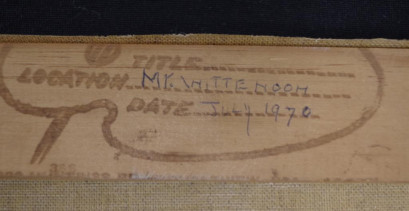 TITLE
LOCATION MT. WITTENOOM
DATE JULY 1970